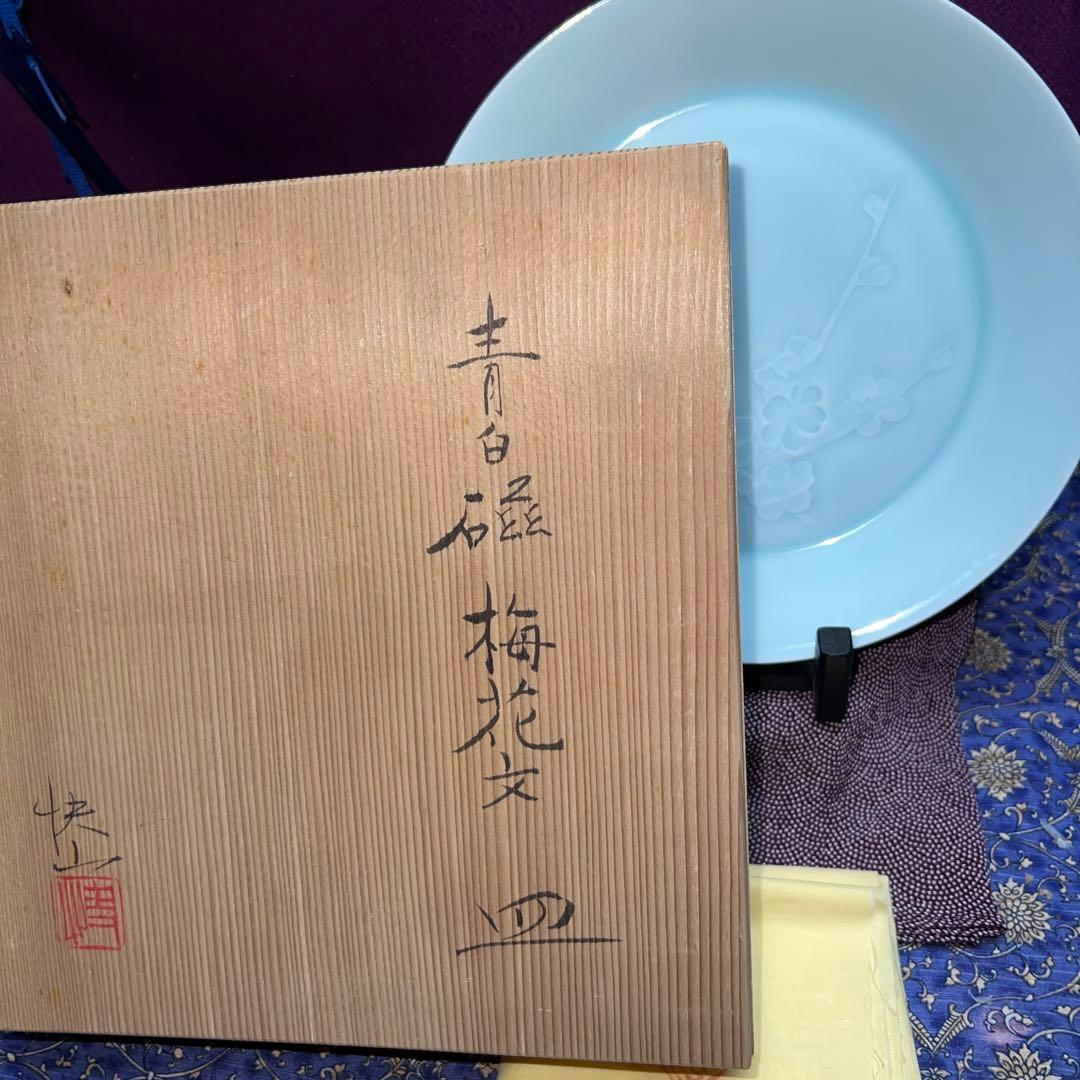 青白磁 梅花文 皿
快山